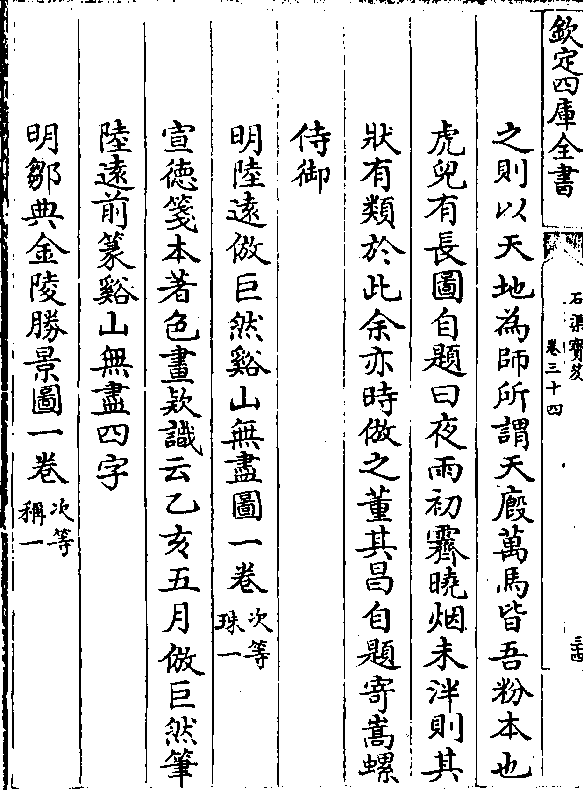 欽定四庫全書
石渠寶笈
卷三十四
之則以天地為師所謂天廄萬馬皆吾粉本也
虎兒有長圖自題曰夜雨初霽曉烟未泮則其
狀有類於此余亦時倣之董其昌自題寄嵩螺
侍御
明陸遠倣巨然谿山無盡圖一卷次等珠一
宣德箋本著色畫欵識云乙亥五月倣巨然筆
陸遠前篆谿山無盡四字
明鄒典金陵勝景圖一卷次等稱一